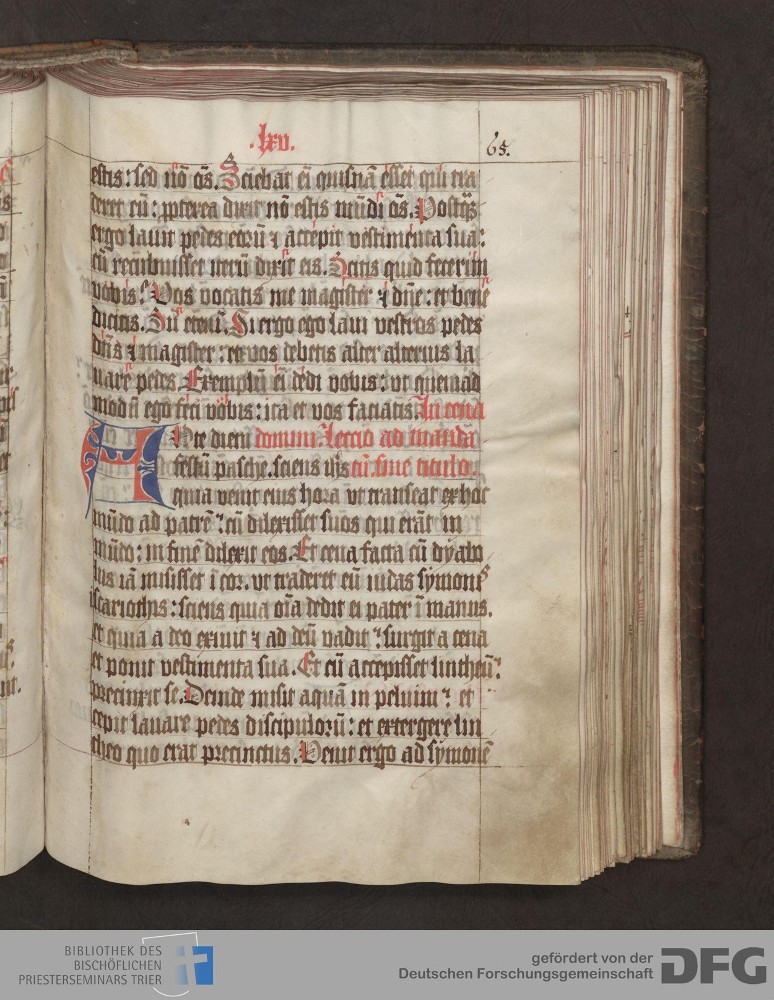 .lxv.
65.
estis: sed nō oēs. Sciebat ei quisnā esset qui tra
deret eū: ꝓpterea dixit nō estis mūdi oēs. Postq̄
ergo lauit pedes eorū ⁊ accepit vestimenta sua:
cū recubuisset iterū dixit eis. Scitis quid fecerim
vobis? Vos vocatis me magister ⁊ dn̄e: et bene
dicitis. Sū etenī. Si ergo ego laui vestros pedes
dn̄s ⁊ magister: et vos debetis alter alterius la
uare pedes. Exemplū ei dedi vobis: vt quemad
modū ego feci vobis: ita et vos faciatis. In cena
Ante diem domini. Leccio ad mandā
festū pasche. sciens ih̄s cū. sine titulo.
quia venit eius hora vt transeat ex hoc
mūdo ad patrē: cū dilexisset suos qui erāt in
mūdo: in finē dilexit eos. Et cena facta cū dyabo
lus iā misisset ī cor. vt traderet eū iudas symonis
scariothis: sciens quia oīa dedit ei pater ī manus.
et quia a deo exiuit ⁊ ad deū vadit: surgit a cena
et ponit vestimenta sua. Et cū accepisset lintheū:
precinxit se. Deinde misit aquā in peluim: et
cepit lauare pedes discipulorū: et extergere lin
theo quo erat precinctus. Venit ergo ad symonē
BIBLIOTHEK DES
BISCHÖFLICHEN
PRIESTERSEMINARS TRIER
gefördert von der
Deutschen Forschungsgemeinschaft
DFG